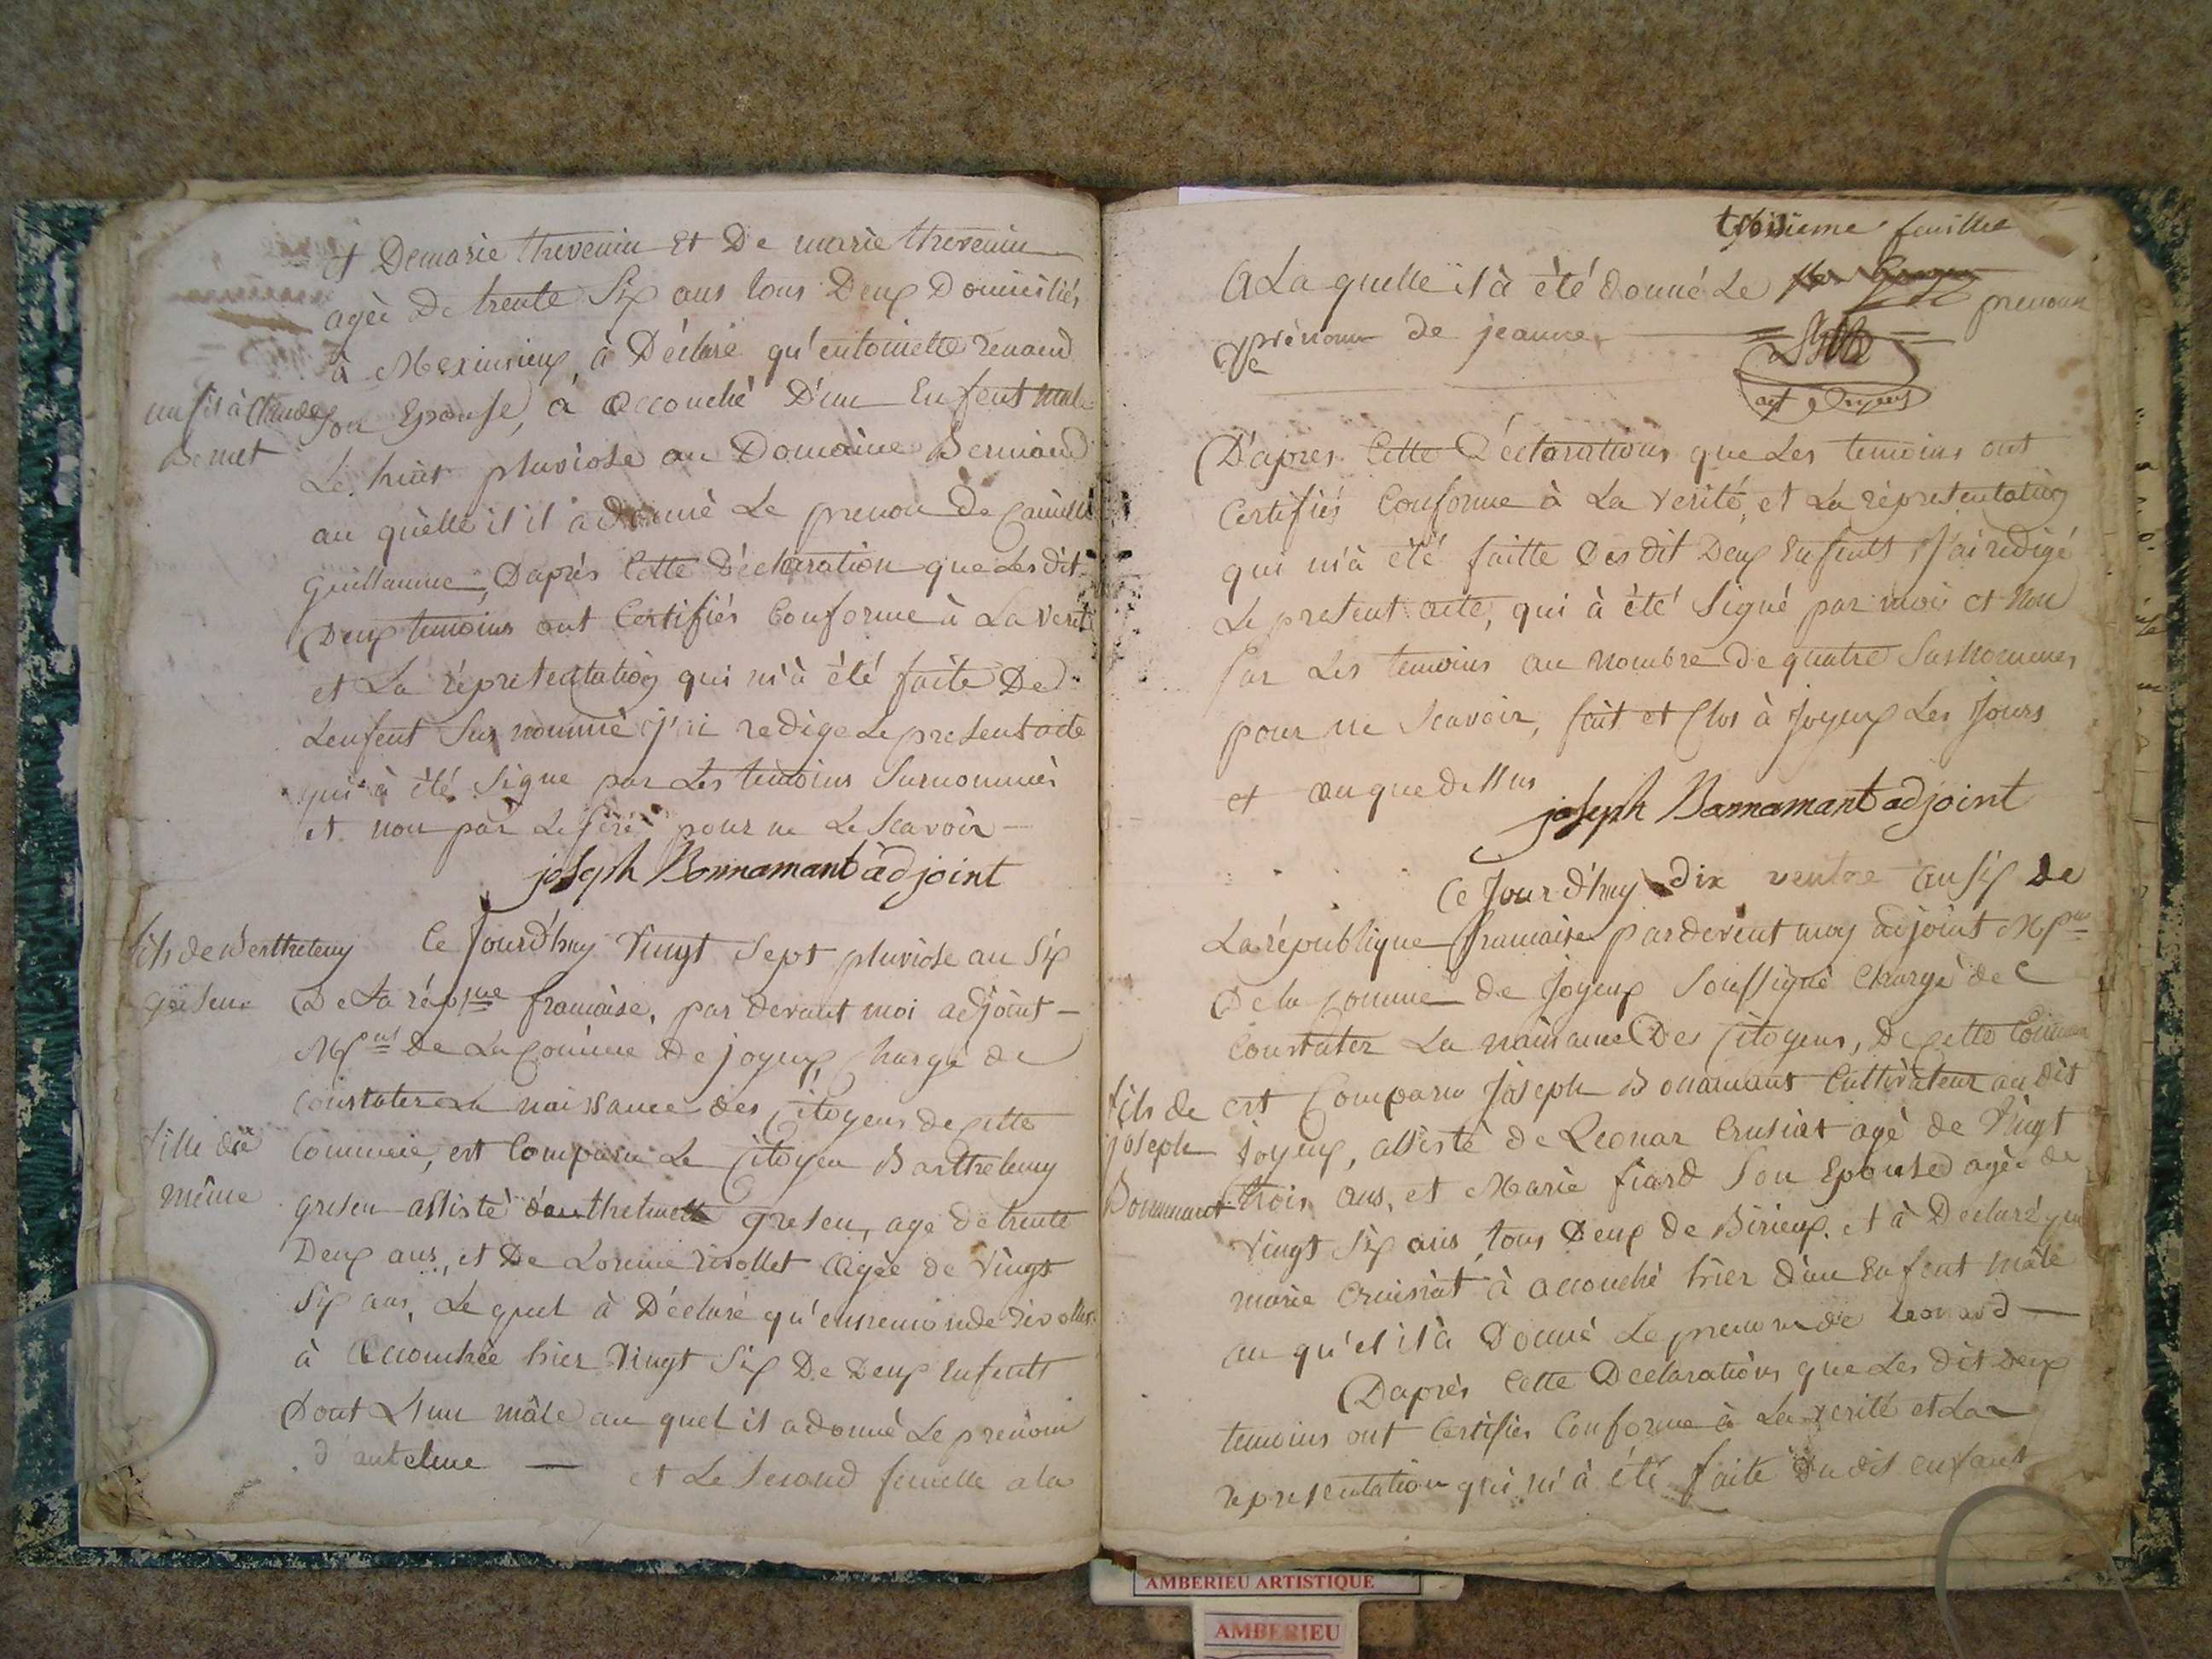 et Demarie thevenin et De marie thevenin
agèe De trente Six ans tous Deux Domiciliés
à Meximieux, à Déclaré qu'entoinette renaud
un fils à Claude
Bernet
Son Epouse, à accouché D'un Enfent male
Le huit pluviose au Domaine Bernand
au quelle il il a donné Le prenon De Camille
Guillaume, Daprés Cette Déclaration que Les dit
Deux temoins ont Certifiés Conforme à La verité
et La réprésentation qui m'à été faite De
L'enfent Sus nommé j'ai redige Le present acte
qui à été Signe par Les temoins Surnommés
et non par Le père pour ne Le Scavoir —
joseph Bonnamant adjoint
fils de Berthelemy
greseu
Ce Jourd'huy Vingt Sept pluviose an Six
De La répque francaise, par devant moi adjoint —
Mpal De La Comune De joyeux, Chargé de
Constater La naissance des Citoyens de cette
fille du
même
Commune, est Comparu Le Citoyen Barthelemy
greseu assisté d'anthelmette greseu, age de trente
Deux ans, et De Lorence rivollet agée de Vingt
Six ans, Le quel à Déclaré qu'ennemonde rivollet
à accouchée hier Vingt Six De Deux Enfents
Dont L'un mâle au quel il a donné Le prénom
d'antelme — et Le Second femelle a la
troisieme feuillee
A La quelle il à été donné Le prenom
prénom de jeanne
D'apres Cette Déclarations que Les temoins ont
Certifiés Conforme à La verité, et La réprésentation
qui m'à été faitte Des dit Deux Enfents, J'ai redigé
Le present acte, qui à été Signé par moi et Non
par Les temoins au nombre de quatre Susnommes
pour ne Scavoir, fait et Clos à Joyeux Les Jours
et an que dessus
joseph Bonnamant adjoint
Ce Jourd'huy dix ventose an Six de
La république francaise pardevent moy adjoint Mpal
De la Comune de Joyeux Soussigné Chargé de
Constater La naissance Des Citoyens, De cette Commune
fils de
joseph
Bonnamant
est Comparu Joseph Bonamant Cultivateur au dit
Joyeux, assisté de Leonar Crusiat agé de Vingt
trois ans, et Marie fiard Son Epouse agée de
Vingt Six ans tous Deux de Birieux. et à Declaré que
marie Cruisiat à accouché hier d'un Enfent mâle
au qu'el il à Donné Le prenom de leonard —
Daprés Cette Declarations que Les dit Deux
temoins ont Certifiés Conforme à La verité et La
representation qui m'à été faite du dit enfant
AMBERIEU ARTISTIQUE
AMBERIEU